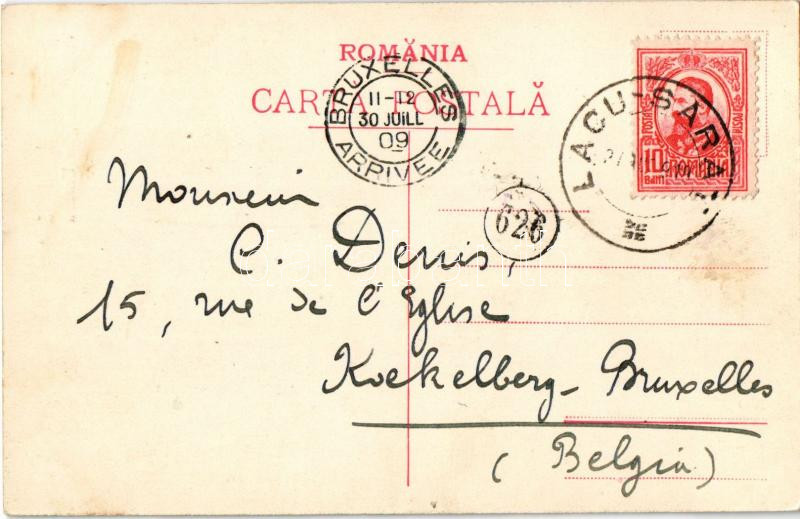 ROMÂNIA
CARTA POSTALĂ
BRUXELLES
11-12
30 JUIL
09
ARRIVEE
LACU-SARAT
10 ROMANIA
BANI
626
Monsieur
C. Denis
15, rue de l'Eglise
Koekelberg-Bruxelles
(Belgia)